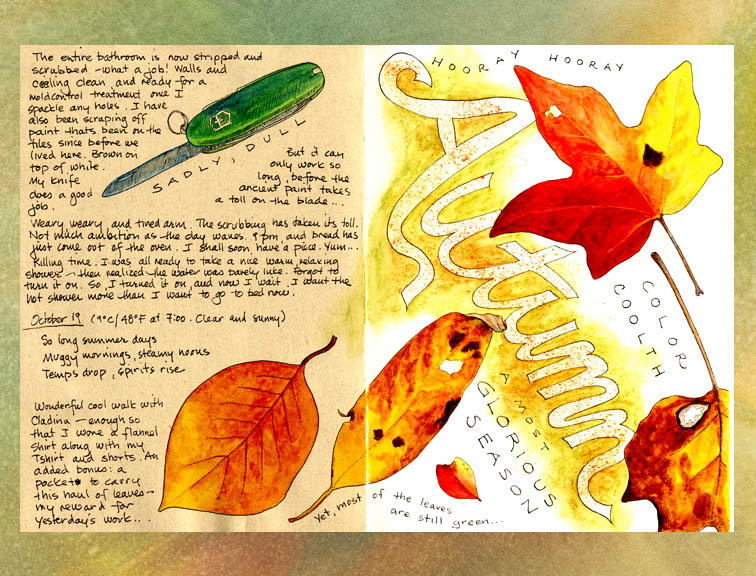 The entire bathroom is now stripped and
scrubbed - what a job! Walls and
ceiling clean and ready for a
moldcontrol treatment once I
spackle any holes. I have
also been scraping off
paint thats been on the
tiles since before we
lived here. Brown on
top of white.
My knife
does a good
job.
SADLY, DULL
But it can
only work so
long, before the
ancient paint takes
a toll on the blade...
Weary weary, and tired arm. The scrubbing has taken its toll.
Not much ambition as the day wanes. 9 pm, and bread has
just come out of the oven. I shall soon have a piece. Yum...
Killing time. I was all ready to take a nice warm, relaxing
shower - then realized the water was barely luke. Forgot to
turn it on. So, I turned it on, and now I wait. I want the
hot shower more than I want to go to bed now.
October 19 (9°C/48°F at 7:00. Clear and sunny)
So long summer days
Muggy mornings, steamy noons
Temps drop, spirits rise
Wonderful cool walk with
Cladina - enough so
that I wore a flannel
shirt along with my
Tshirt and shorts. An
added bonus: a
pocket to carry
this haul of leaves -
my reward for
yesterday's work...
HOORAY HOORAY
Autumn
COLOR
COOLTH
A MOST
GLORIOUS
SEASON
Yet, most of the leaves
are still green...